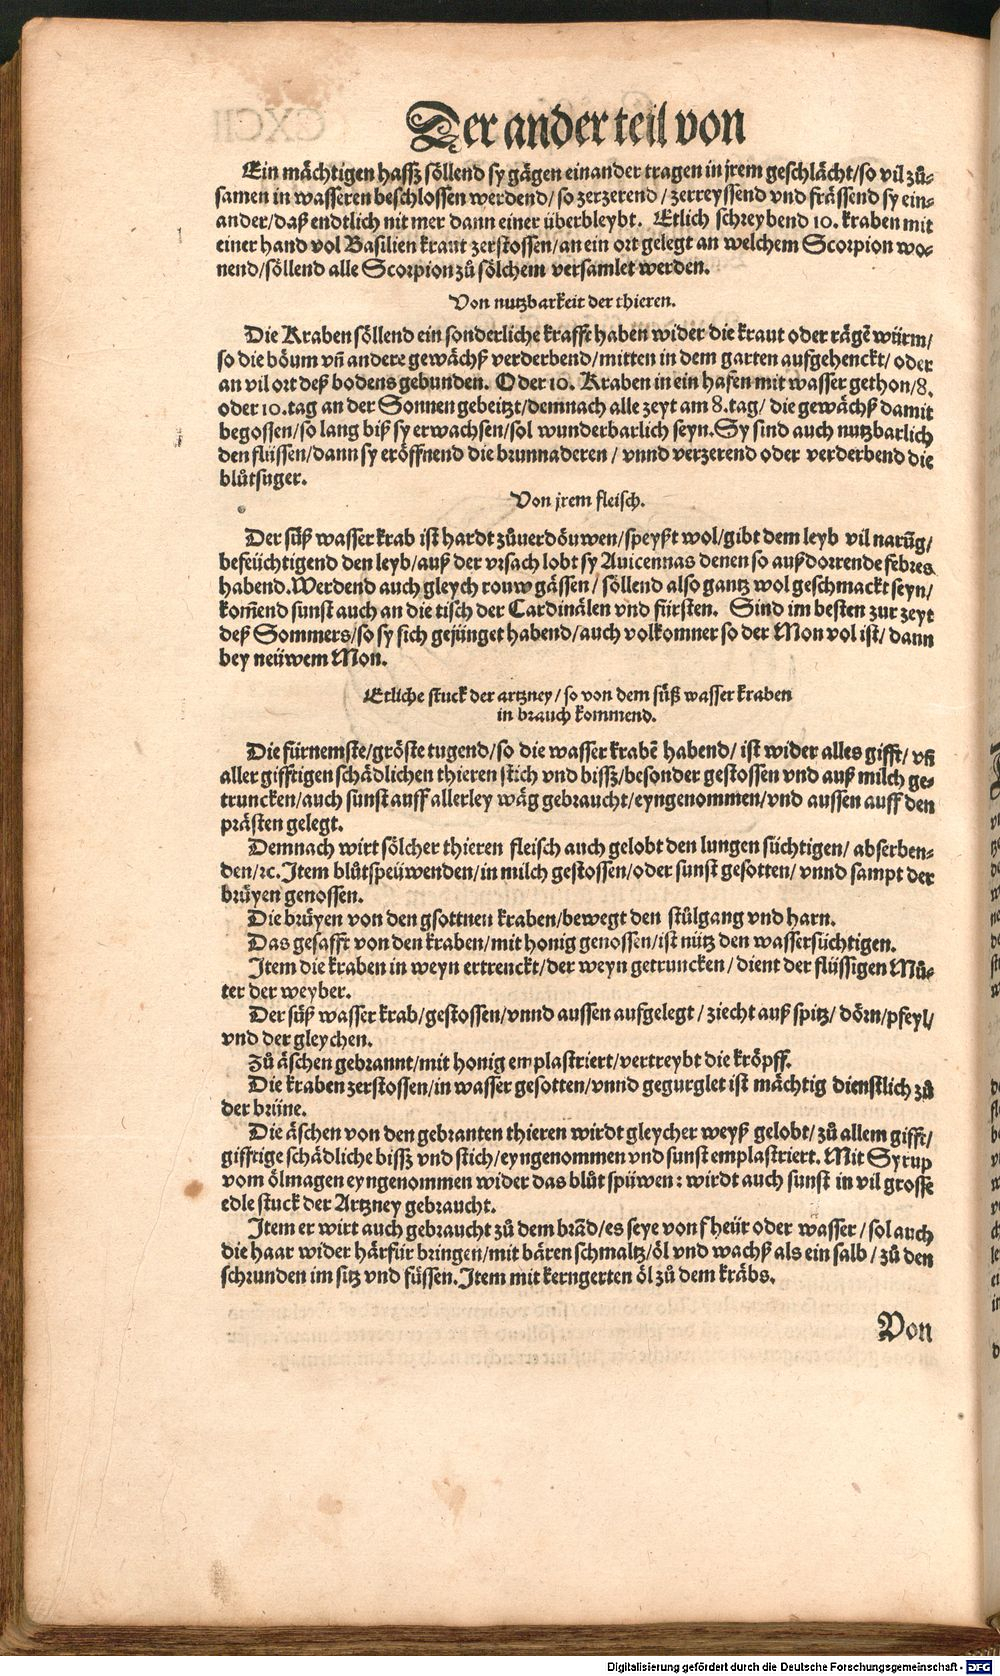 Der ander teil von
Ein mächtigen hassz söllend sy gägen einander tragen in jrem geschlächt/so vil zů-
samen in wasseren beschlossen werdend/ so zerzerend / zerreyssend vnd frässend sy ein-
ander/daß endtlich nit mer dann einer überbleybt. Etlich schreybend 10. kraben mit
einer hand vol Basilien kraut zerstossen/an ein ort gelegt an welchem Scorpion wo-
nend/söllend alle Scorpion zů sölchem versamlet werden.
Von nutzbarkeit der thieren.
Die Kraben söllend ein sonderliche krafft haben wider die kraut oder rägē würm/
so die böum vñ andere gewächß verderbend/mitten in dem garten aufgehenckt/ oder
an vil ort deß bodens gebunden. Oder 10. Kraben in ein hafen mit wasser gethon/8.
oder 10.tag an der Sonnen gebeitzt/demnach alle zeyt am 8.tag/ die gewächß damit
begossen/so lang biß sy erwachsen/sol wunderbarlich seyn.Sy sind auch nutzbarlich
den flüssen/dann sy eröffnend die brunnaderen / vnnd verzerend oder verderbend die
blůtsuger.
Von jrem fleisch.
Der süß wasser krab ist hardt zůuerdöuwen/speyßt wol/gibt dem leyb vil narūg/
befeüchtigend den leyb/auß der vrsach lobt sy Auicennas denen so außdorrende febres
habend.Werdend auch gleych rouw gässen/ söllend also gantz wol geschmackt seyn/
kom̄end sunst auch an die tisch der Cardinälen vnd fürsten. Sind im besten zur zeyt
deß Sommers/so sy sich gejünget habend/auch volkomner so der Mon vol ist/ dann
bey neüwem Mon.
Etliche stuck der artzney/ so von dem süß wasser kraben
in brauch kommend.
Die fürnemste/gröste tugend/so die wasser krabē habend/ ist wider alles gifft/ vñ
aller gifftigen schädlichen thieren stich vnd bissz/besonder gestossen vnd auß milch ge-
truncken/auch sunst auff allerley wäg gebraucht/eyngenommen/vnd aussen auff den
prästen gelegt.
Demnach wirt sölcher thieren fleisch auch gelobt den lungen süchtigen/ abserben-
den/ꝛc. Item blůtspeüwenden/in milch gestossen/oder sunst gesotten/ vnnd sampt der
brüyen genossen.
Die brüyen von den gsottnen kraben/bewegt den stůlgang vnd harn.
Das gesafft von den kraben/mit honig genossen/ist nütz den wassersüchtigen.
Item die kraben in weyn ertrenckt/der weyn getruncken / dient der flüssigen Můt-
ter der weyber.
Der süß wasser krab/gestossen/vnnd aussen aufgelegt / ziecht auß spitz/ dörn/pfeyl/
vnd der gleychen.
Zů äschen gebrannt/mit honig emplastriert/vertreybt die kröpff.
Die kraben zerstossen/in wasser gesotten/vnnd gegurglet ist mächtig dienstlich zů
der brüne.
Die äschen von den gebranten thieren wirdt gleycher weyß gelobt/ zů allem gifft/
gifftige schädliche bissz vnd stich/eyngenommen vnd sunst emplastriert. Mit Syrup
vom ölmagen eyngenommen wider das blůt spüwen: wirdt auch sunst in vil grosse
edle stuck der Artzney gebraucht.
Item er wirt auch gebraucht zů dem brād/es seye von fheür oder wasser / sol auch
die haar wider härfür bringen/mit bären schmaltz/öl vnd wachß als ein salb / zů den
schrunden im sitz vnd füssen. Item mit kerngerten öl zů dem kräbs.
Von
Digitalisierung gefördert durch die Deutsche Forschungsgemeinschaft - DFG